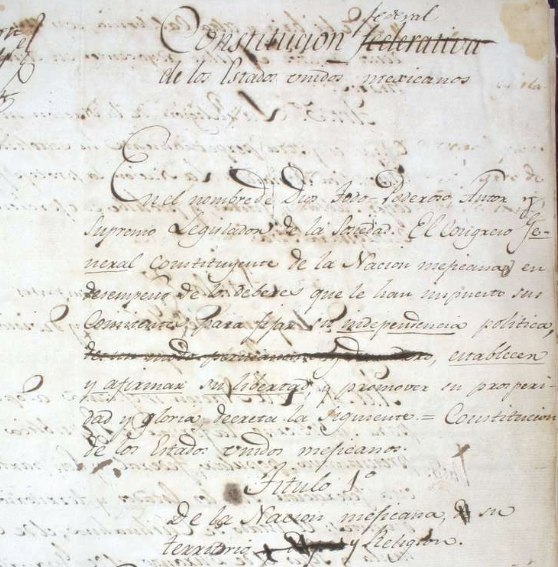 federal
Constitucion federativa
de los Estados unidos mexicanos
En el nombre de Dios Todo-Poderoso, Autor y
Supremo Legislador de la Sociedad. El Congreso Ge-
neral Constituyente de la Nacion mejicana, en
desempeño de los deberes que le han impuesto sus
Comitentes, para fijar su independencia politica,
establecen
y afirmar su libertad, y promover su prosperi-
dad y gloria decreta la siguiente = Constitucion
de los Estados unidos mejicanos.
Titulo 1º
De la Nacion mejicana, su
territorio y Religion.